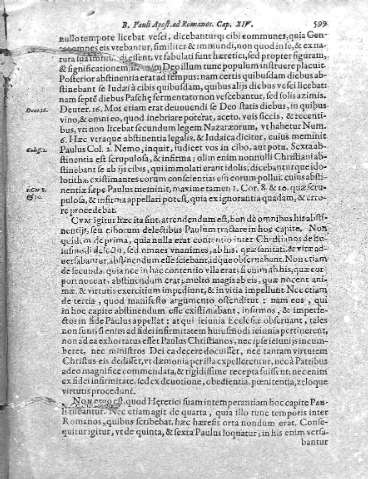 B. Pauli Apost. ad Romanos. Cap. XIV. 599
nullo tempore licebat vesci, dicebanturq; cibi communes, quia Gen-
omnes eis vtebantur, similiter & immundi, non quod in se, & ex na-
tura sua essent, vt fabulati sunt hæretici, sed propter figuram,
& significationem, Deo illum tunc populum instruere placuit.
Posterior abstinentia erat ad tempus: nam certis quibusdam diebus ab-
stinebant se Iudæi à cibis quibusdam, quibus alijs diebus vesci licebat:
nam septē diebus Paschę fermentato non vescebantur, sed solis azimis.
Deuter. 16. Mos etiam erat deuouendi se Deo statis diebus, in quibus
vino, & omni eo, quod inebriare poterat, aceto, vuis siccis, & recenti-
bus, vti non licebat secundum legem Nazaræorum, vt habetur Num.
6. Hæc vtraque abstinentia legalis, & Iudaica dicitur, cuius meminit
Paulus Col. 2. Nemo, inquit, iudicet vos in cibo, aut potu. Sexta ab-
stinentia est scrupulosa, & infirma: olim enim nonnulli Christiani ab-
stinebant se ab ijs cibis, qui immolati erant idolis, dicebanturque ido-
lothita: existimantes eorum conscientias esu eorum pollui: cuius absti-
nentiæ sepe Paulus meminit, maxime tamen 1. Cor. 8. & 10. quæ scru-
pulosa, & infirma appellari potest, quia ex ignorantia quadam, & erro-
re procedebat.
Cum igitur hæc ita sint, attendendum est, non de omnibus his absti-
nentijs, seu ciborum delectibus Paulum tractare in hoc capite. Non
quidem de prima, quia nulla erat contentio inter Christianos de
huiusmodi delectu, sed omnes vnanimes, ab his, quæ sanitati, & vitæ ad-
uersabantur, abstinendum esse sciebant, adque obseruabant. Non etiam
de secunda, quia nec in hac contentio vlla erat: si enim ab his, quæ cor-
pori nocent, abstinendum erat; multo magis ab eis, quæ nocent ani-
mæ, & virtutis exercitium impediunt, & in vitia impellunt. Nec etiam
de tertia, quod manifesto argumento ostenditur: nam eos, qui
in hoc capite abstinendum esse existimabant, infirmos, & imperfe-
ctos in fide Paulus appellat: at qui ieiunia Ecclesiæ obseruant, tales
non sunt: si enim ad fidei infirmitatem huiusmodi ieiunia pertinerent,
non ad ea exhortatus esset Paulus Christianos, nec ipse ieiunijs incum-
beret, nec ministros Dei ea decere docuisset, nec tantam virtutem
Christus eis dedisset, vt dæmonia per illa expellerentur, nec à Patribus
adeo magnifice commendata, & rigidissime recepta fuissent: nec enim
ex fidei infirmitate, sed ex deuotione, obedientia, pœnitentia, zeloque
virtutis procedunt.
Non ergo est, quod Hęretici suam intemperantiam hoc capite Pau-
li tueantur. Nec etiam agit de quarta, quia illo tunc temporis inter
Romanos, quibus scribebat, hæc hæresis orta nondum erat. Conse-
quitur igitur, vt de quinta, & sexta Paulus loquatur, in his enim versa-
bantur
Deut. 16.
Coloss. 2.
1. Cor. 8.
& 10.